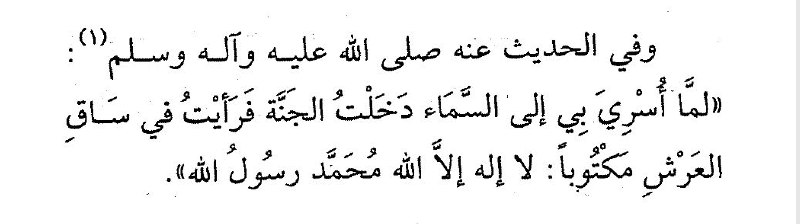 وفي الحديث عنه صلى الله عليه وآله وسلم(١):
«لمَّا أُسْرِيَ بِي إلى السَّمَاء دَخَلْتُ الجَنَّة فَرَأيْتُ في سَاقِ
العَرْشِ مَكْتُوباً: لا إله إلاَّ الله مُحَمَّد رسُولُ الله».